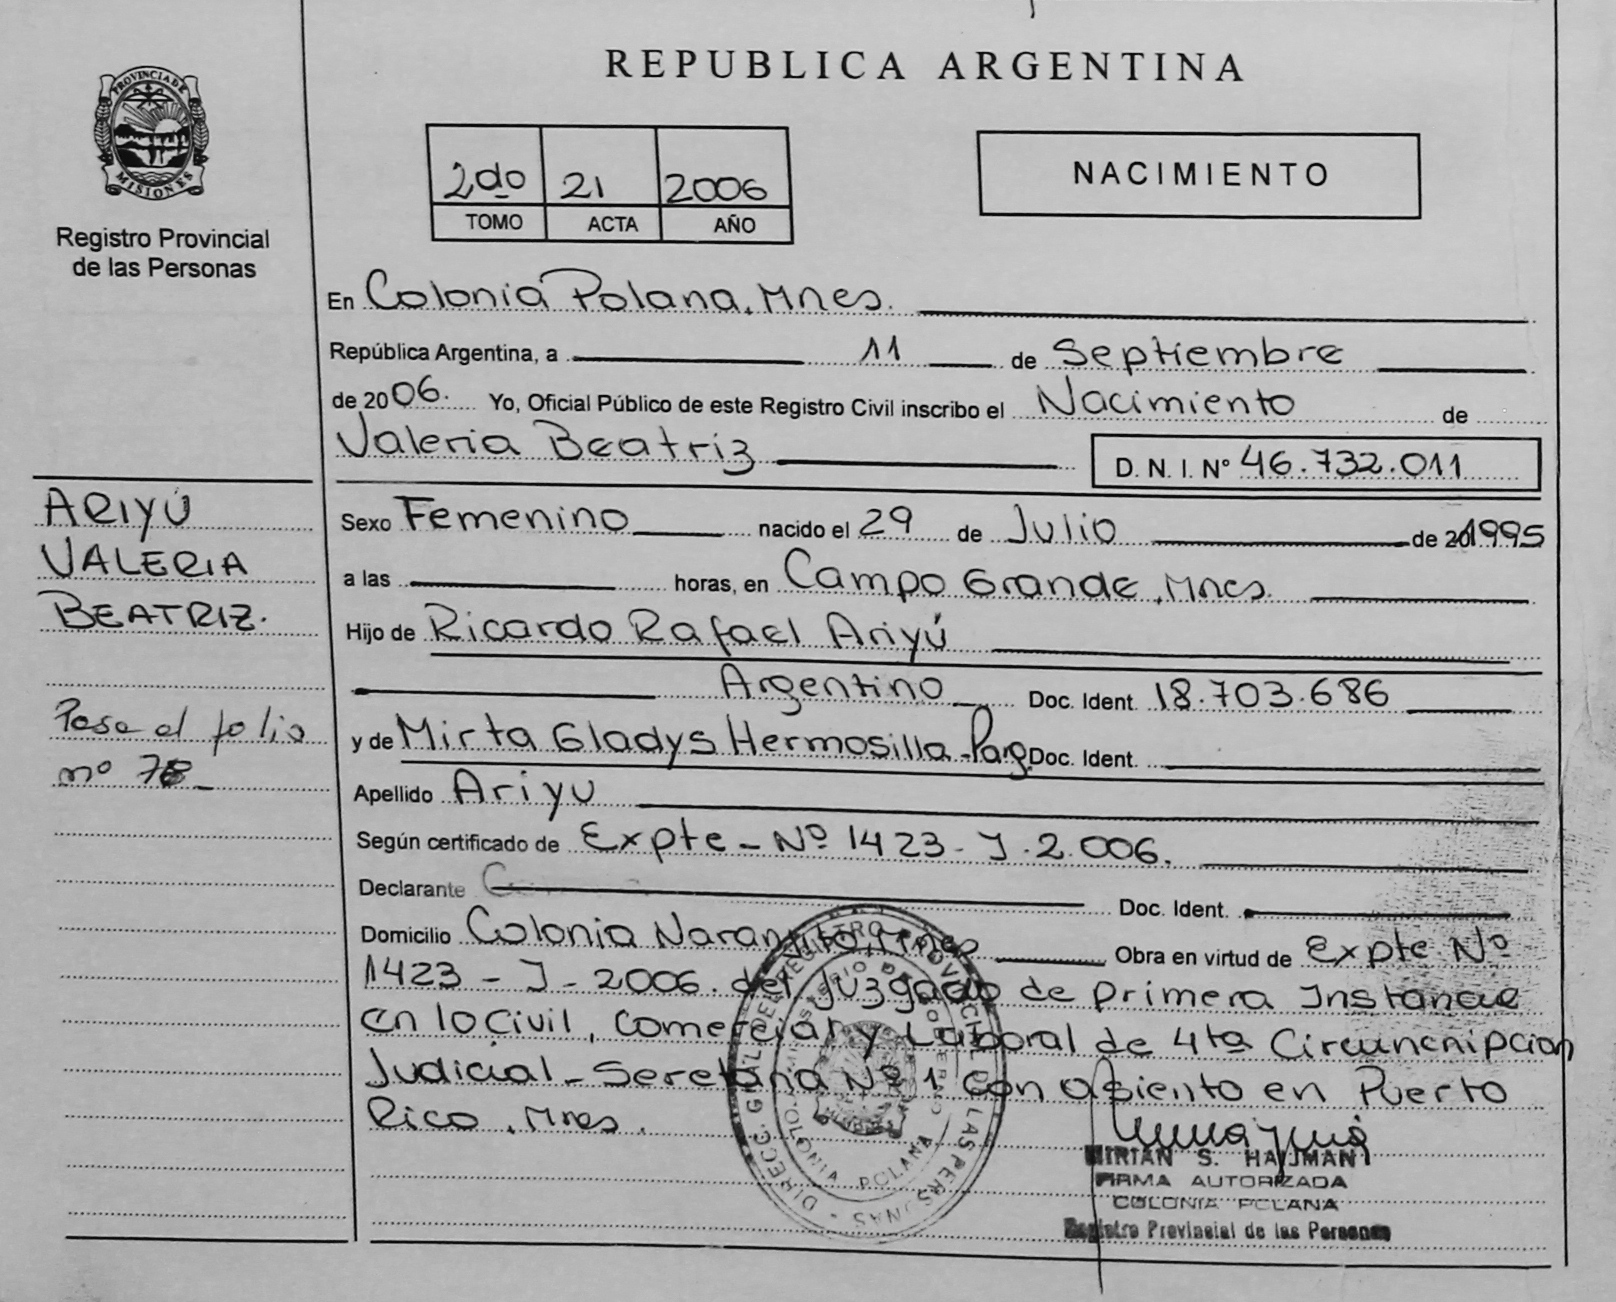 REPUBLICA ARGENTINA
PROVINCIA DE MISIONES
Registro Provincial
de las Personas
2do 21 2006
TOMO ACTA AÑO
NACIMIENTO
En Colonia Polana, Mnes.
República Argentina, a 11 de Septiembre
de 2006. Yo, Oficial Público de este Registro Civil inscribo el Nacimiento de
Valeria Beatriz D. N. I. Nº 46.732.011
ARIYÚ
VALERIA
BEATRIZ.
Pasa al folio
nº 78
Sexo Femenino nacido el 29 de Julio de 1995
a las horas, en Campo Grande, Mnes.
Hijo de Ricardo Rafael Ariyú
Argentino Doc. Ident. 18.703.686
y de Mirta Gladys Hermosilla - Parg. Doc. Ident.
Apellido Ariyu
Según certificado de Expte - Nº 1423 - J - 2.006.
Declarante Doc. Ident.
Domicilio Colonia Naranjito, Mnes Obra en virtud de Expte Nº
1423 - J - 2006. del Juzgado de Primera Instancia
en lo Civil, Comercial y Laboral de 4ta Circuncripcion
Judicial - Secretaria Nº 1 con asiento en Puerto
Rico, Mnes.
DIREC. GRL. DEL REGISTRO PROVINCIAL DE LAS PERSONAS
MINISTERIO DE GOBIERNO
COLONIA POLANA
MIRIAN S. HAUMAN
FIRMA AUTORIZADA
COLONIA POLANA
Registro Provincial de las Personas